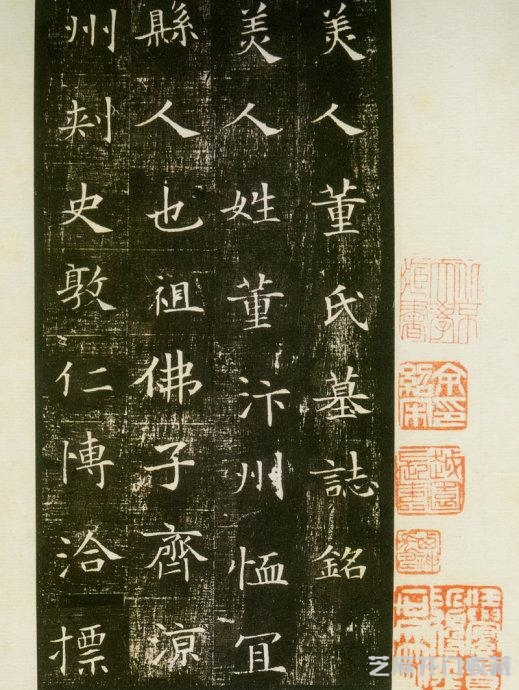 美人董氏墓誌銘
美人姓董汴州恤宜
縣人也祖佛子齊涼
州刺史敦仁博洽摽
余印紹宋